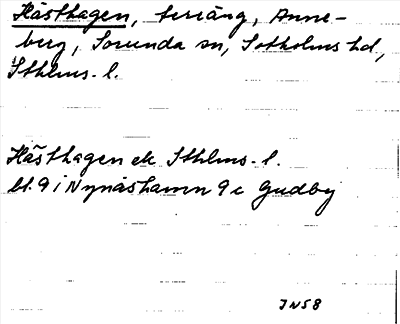 Hästhagen, teräng, Anne-
berg, Sorunda sn, Sotholms hd,
Sthlms. l.
Hästhagen ek Sthlms. l.
bl. 9 i Nynäshamn 9 c Gudby
JN58